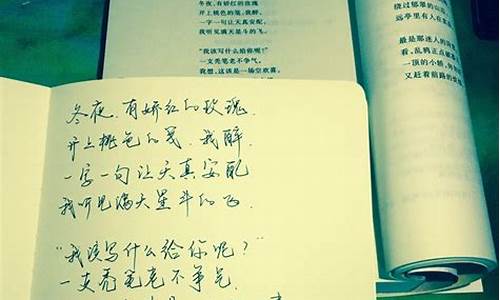 冬夜,有娇红的玫瑰
开上桃色的笺,我醉,
一字一句让天真安配
我听见满天星斗的飞。
“我该写什么给你呢?”
一支秃笔老不争气,
我想,这该是一场空欢喜。
绕过郁翠的山
远亭里有人在
最是那迷人的
看,乱鸦正点破
一顶的小轿,
又赶着前路的
冬夜.有娇红的玫瑰.
开上桃色的笺.我醉.
一字一句让天真安配
我听见满天星斗的飞.
“我该写什么给你呢?”
一支秃笔老不争气.